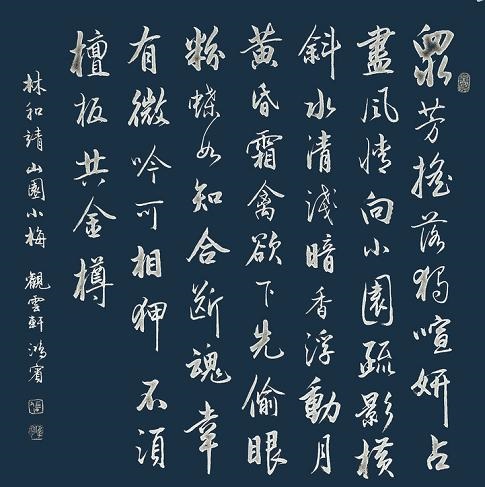 眾芳搖落獨喧妍占
盡風情向小園疏影横
斜水清淺暗香浮動月
黄昏霜禽欲下先偷眼
粉蝶如知合断魂幸
有微吟可相狎不須
檀板共金樽
林和靖山園小梅 觀雲軒鴻賓